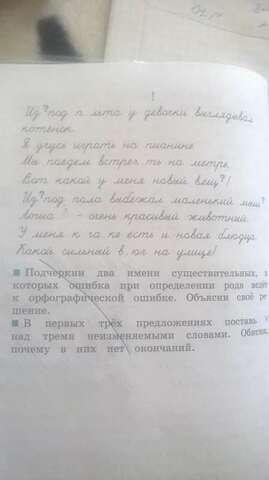 Из?под п льта у девочки выглядывал
котёнок.
Я учусь играть на пианине.
Мы поедем встреч ть на метре.
Вот какой у меня новый вещ?!
Из?под пола выбежал маленький мыш?
лоша ? - очень красивый животный.
У меня к га ке есть и новая блюдца.
Какой сильный в юг на улице!
Подчеркни два имени существительных, в
которых ошибка при определении рода ведёт
к орфографической ошибке. Объясни своё ре
шение.
В первых трёх предложениях поставь
над тремя неизменяемыми словами. Объясни,
почему в них нет окончаний.